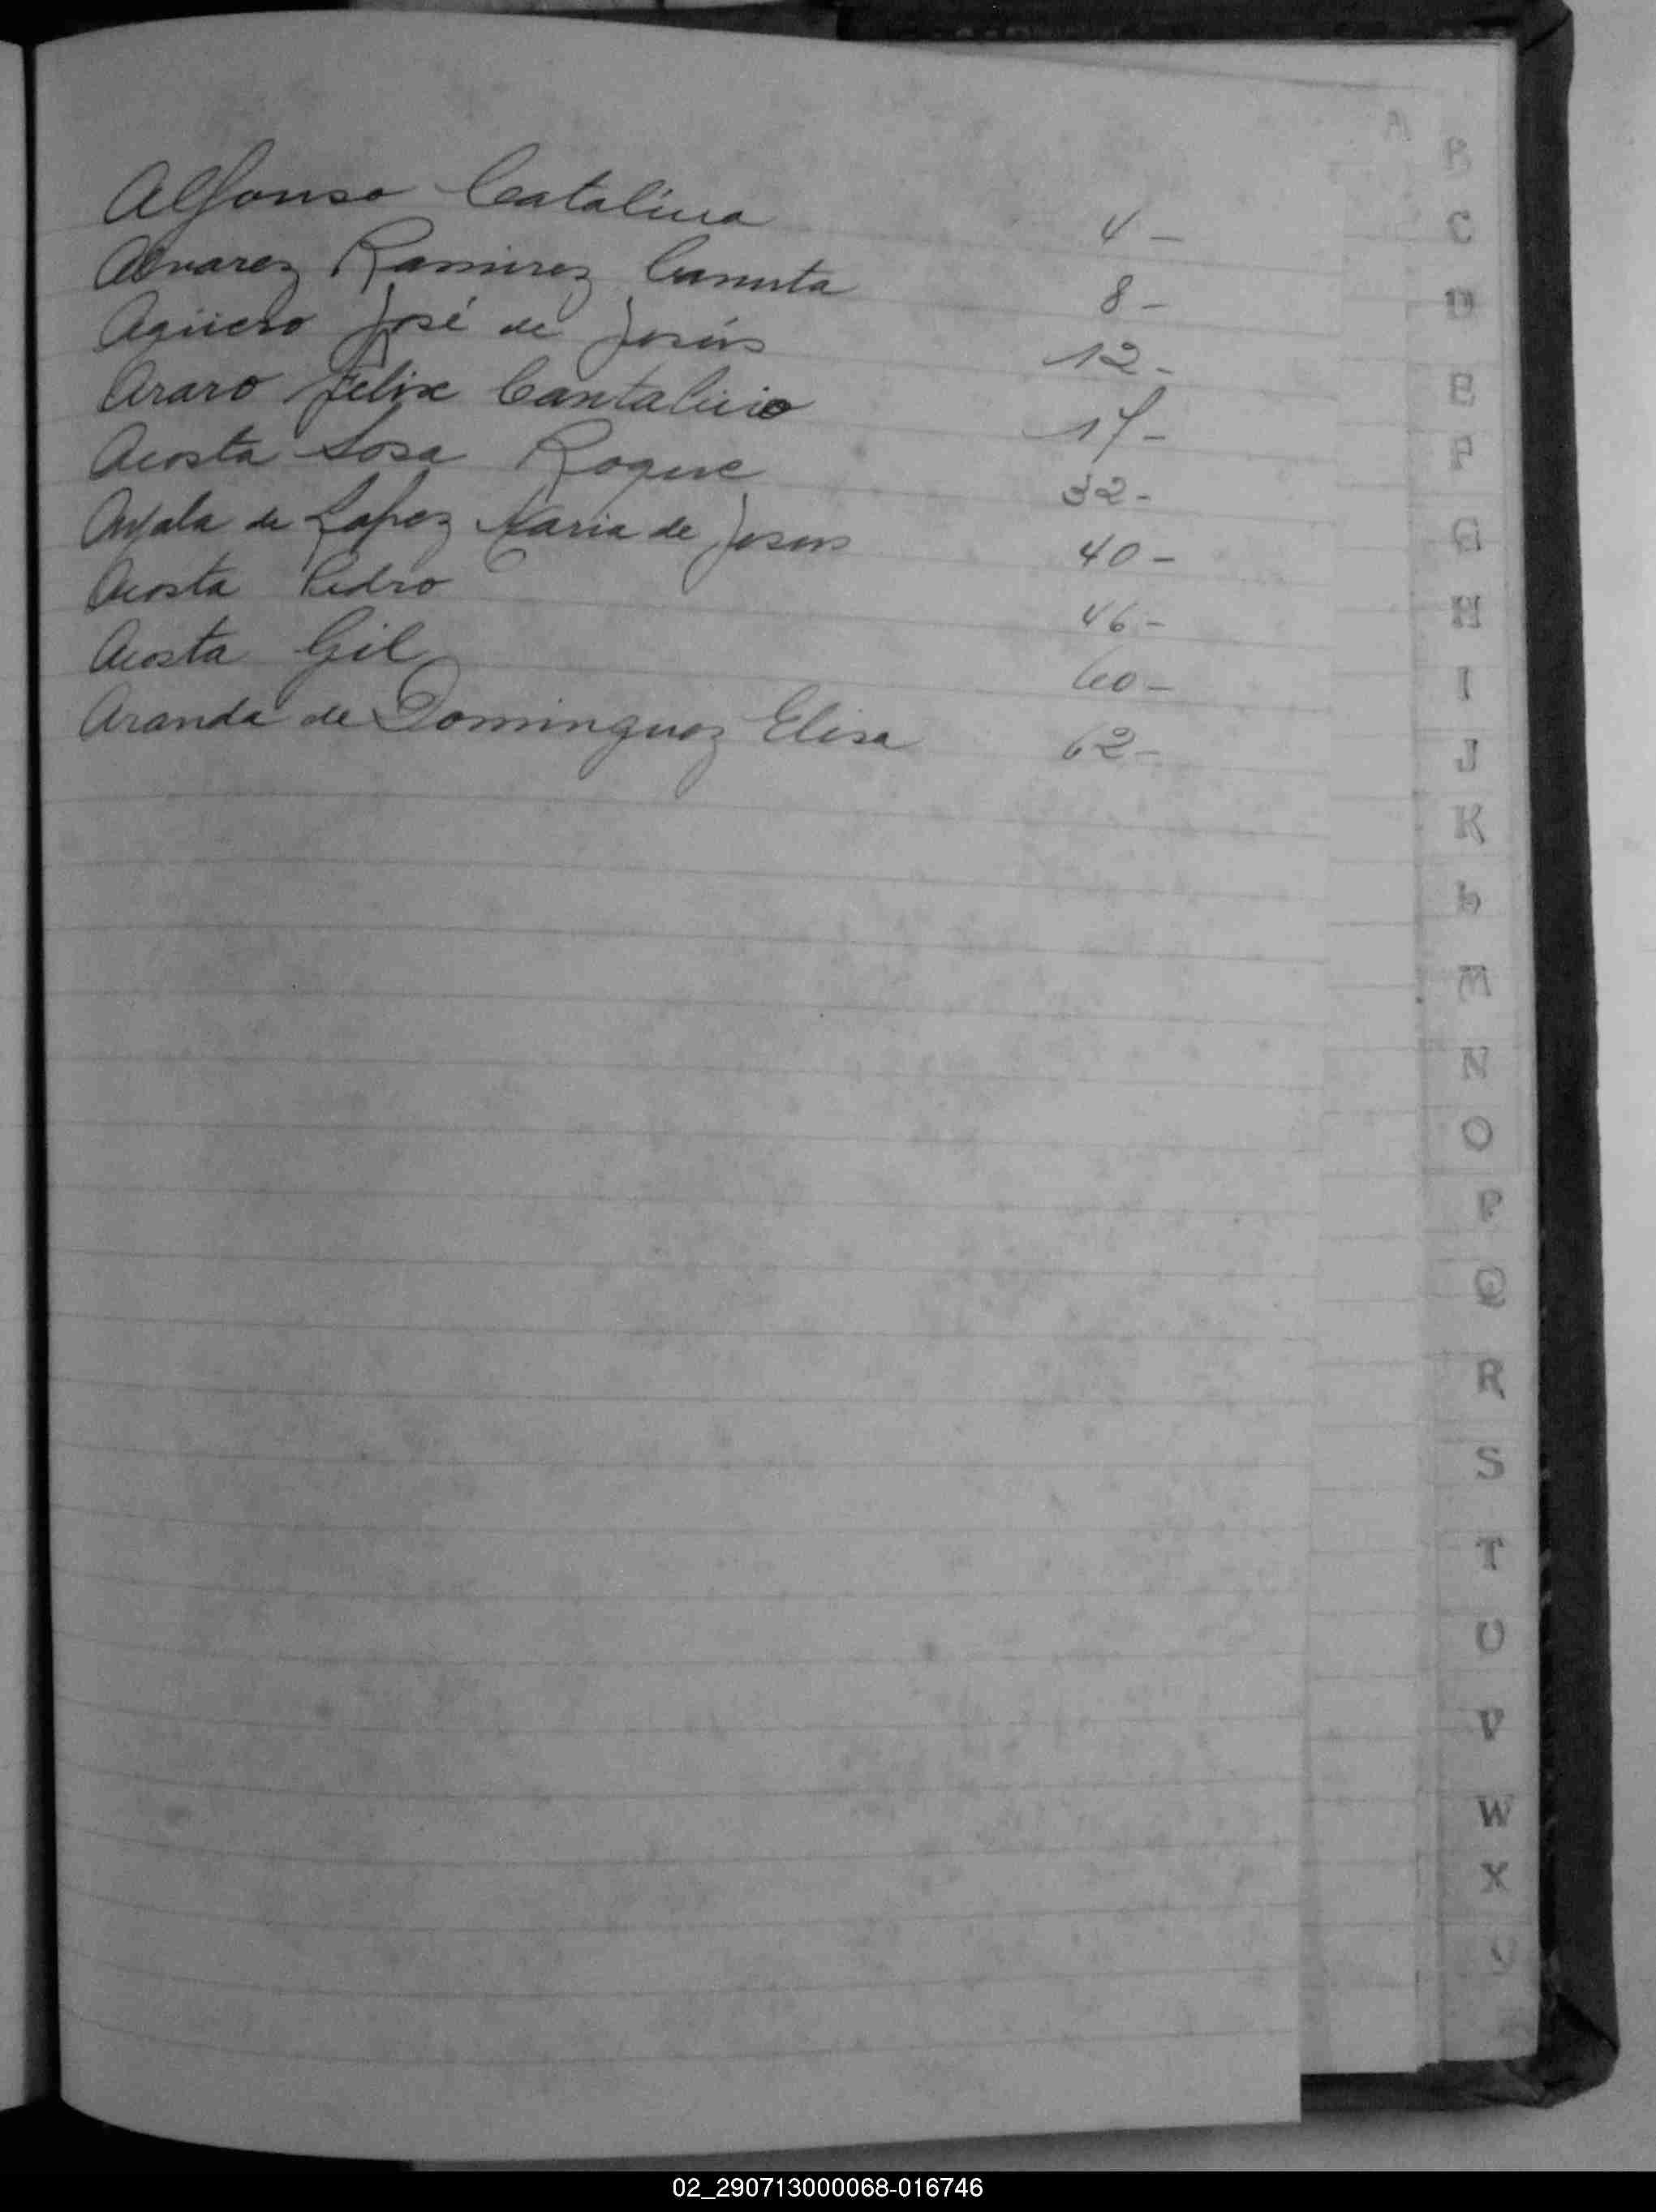 Alfonso Catalina 4-
Alvarez Ramirez Canuta 8-
Agüero José de Jesús 12-
Araro Felix Cantalicio 17-
Acosta Sosa Roque 32-
Ayala de Lopez Maria de Jesus 40-
Acosta Pedro 46-
Acosta Gil 60-
Aranda de Dominguez Elisa 62-
A
B
C
D
E
F
G
H
I
J
K
L
M
N
O
P
Q
R
S
T
U
V
W
X
02_290713000068-016746